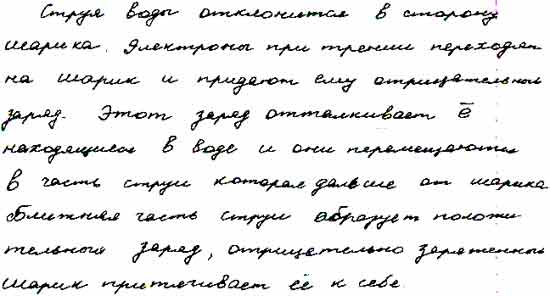 Струя воды отклонится в сторону
шарика. Электроны при трении переходят
на шарик и придают ему отрицательный
заряд. Этот заряд отталкивает ē
находящиеся в воде и они перемещаются
в часть струи которая дальше от шарика
Ближняя часть струи образует положи
тельный заряд, отрицательно заряженный
шарик притягивает её к себе.